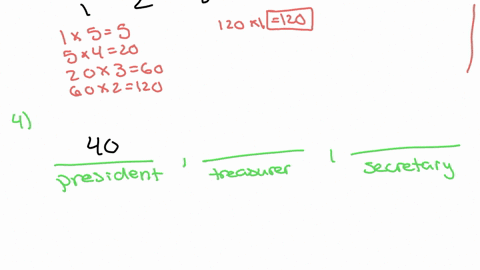 1 2
1 x 5 = 5
5 x 4 = 20
20 x 3 = 60
60 x 2 = 120
120 x 1 = 120
4)
40
president , treasurer , secretary